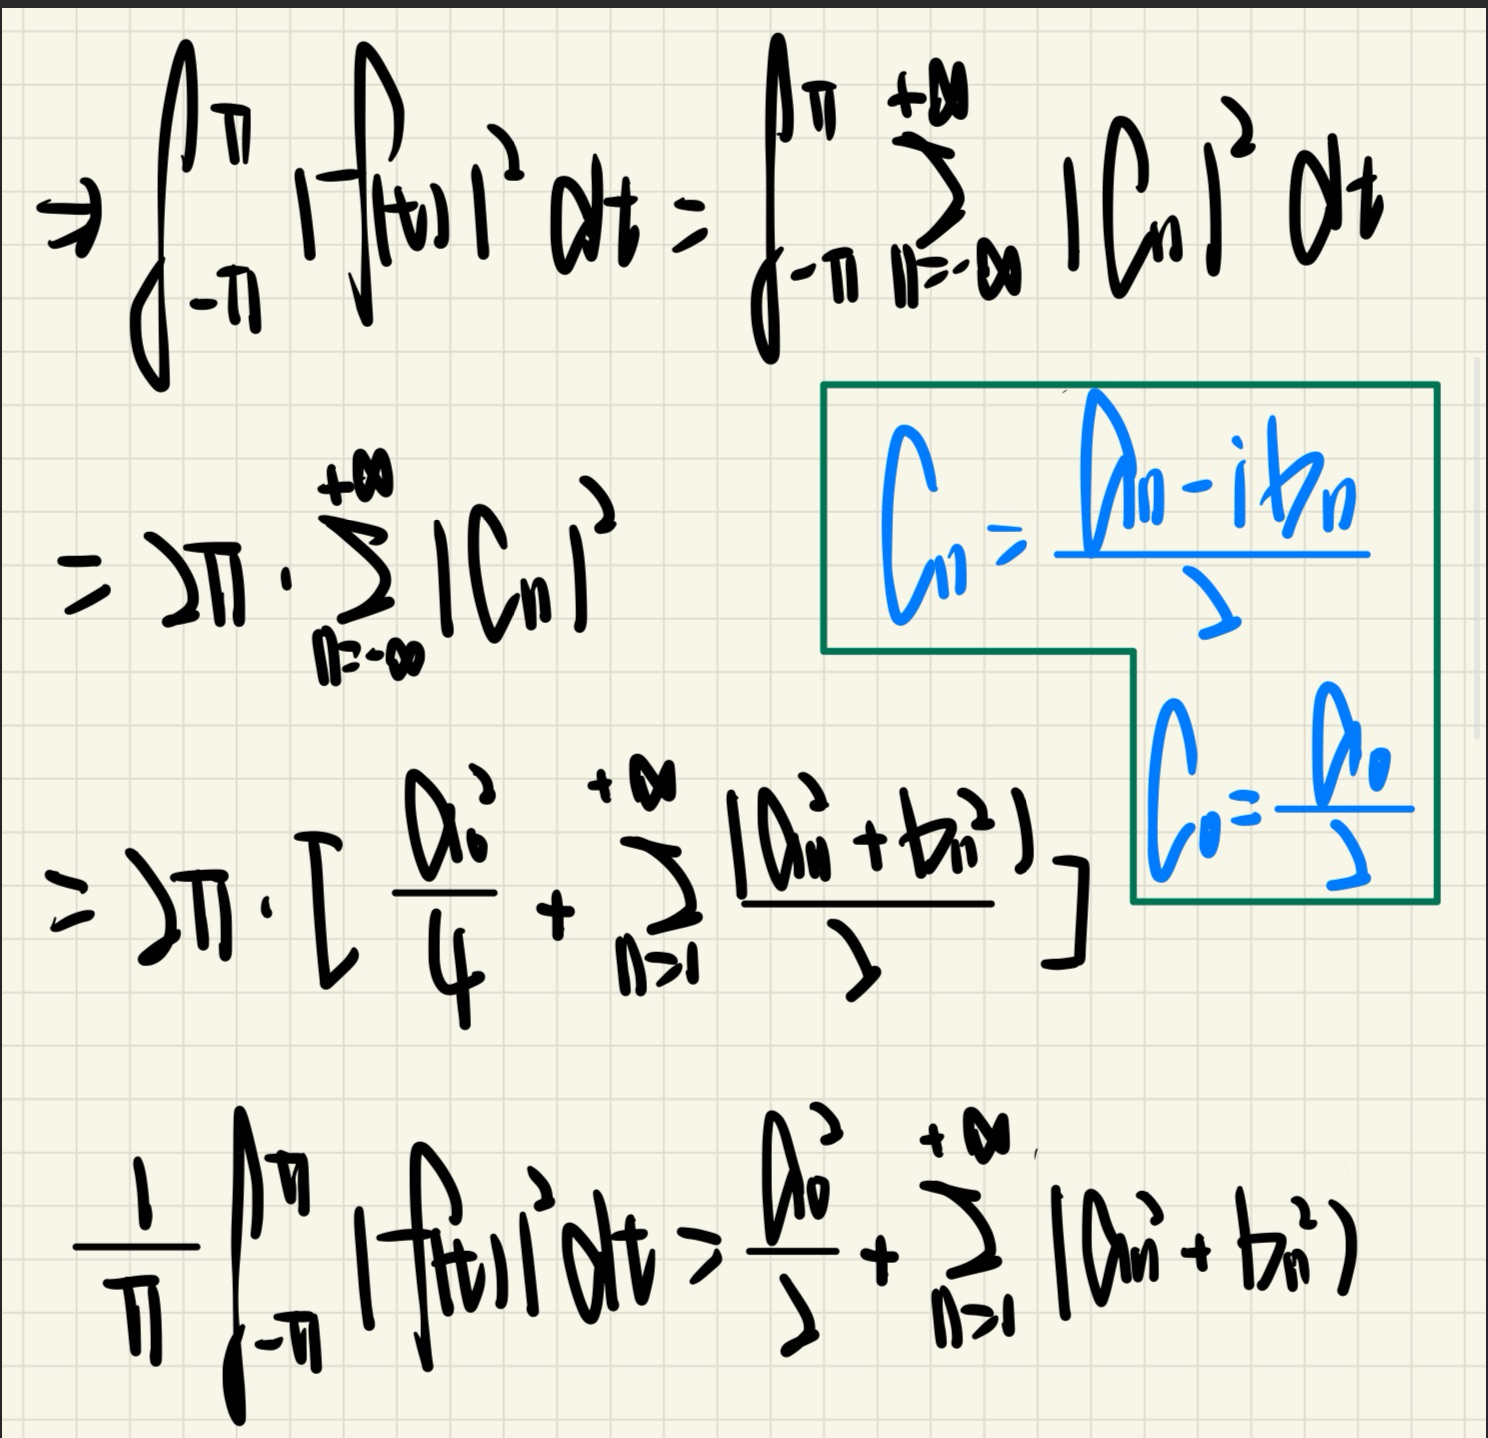 ⇒ ∫_{-π}^{π} |f(t)|² dt = ∫_{-π}^{π} ∑_{n=-∞}^{+∞} |Cₙ|² dt
= 2π · ∑_{n=-∞}^{+∞} |Cₙ|²
Cₙ = (aₙ - ibₙ)/2
C₀ = a₀/2
= 2π · [ a₀²/4 + ∑_{n=1}^{+∞} (aₙ² + bₙ²)/2 ]
1/π ∫_{-π}^{π} |f(t)|² dt = a₀²/2 + ∑_{n=1}^{+∞} (aₙ² + bₙ²)